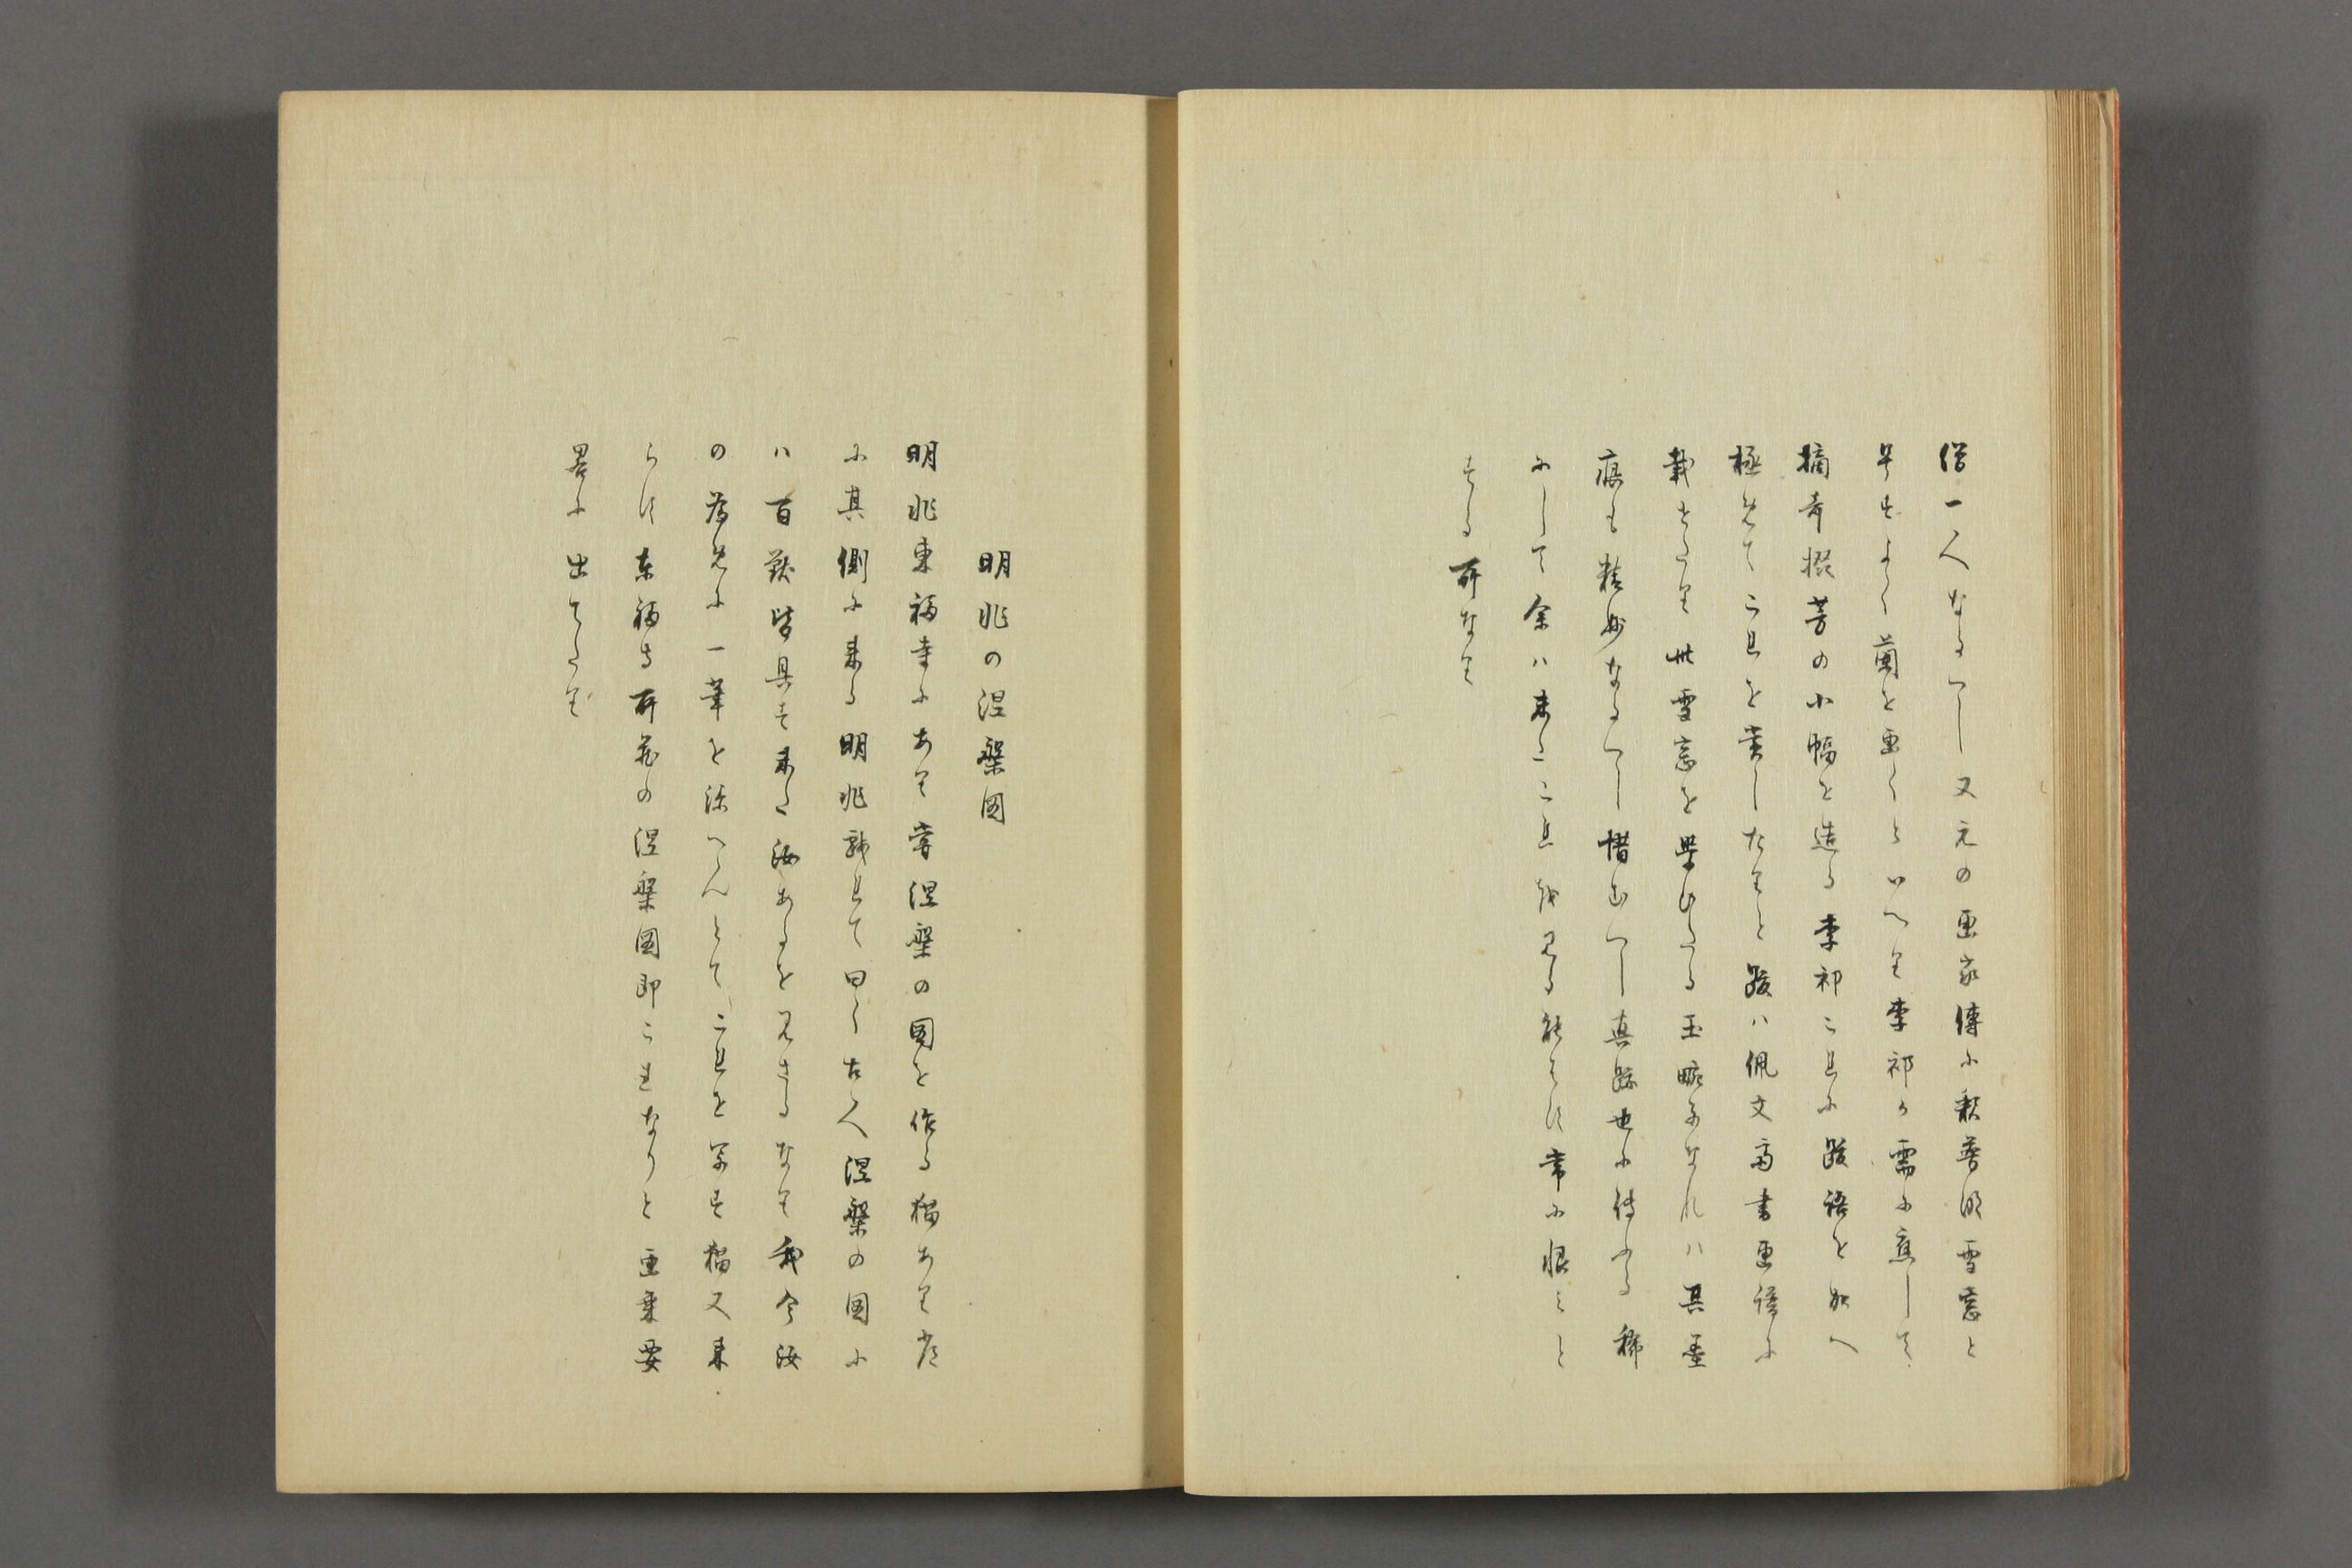 僧一人なるへし又元の画家傳に釈普明雪窓と
号すよく蘭を画くといへり李祁か需に應して
摘奇掇芳の小幅を造る李祁これに跋語を加へ
極めてこれを賞したりと跋ハ佩文斎書画譜に
載せたり此雪窓を学ひたる玉畹子なれハ其墨
痕も精妙なるへし惜むへし真跡世に傳ふる稀
にして余ハ未たこれを見る能はす常に恨みと
する所なり
明兆の涅槃図
明兆東福寺にあり嘗涅槃の図を作る猫あり席
に其側に来る明兆戯れて曰く古人涅槃の図に
ハ百獣皆具す未た汝あるを見さるなり我今汝
の為めに一筆を添へんとてこれを写す猫又来
らす東福寺所蔵の涅槃図即これなりと画乗要
畧に出てたり